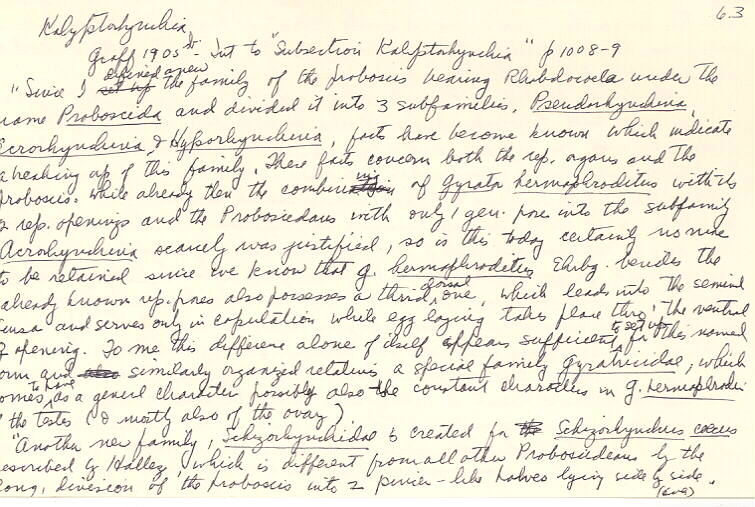 63
Kalyptorhynchia
Graff 1905 - Int to "Subsection Kalyptorhynchia" p 1008-9
"Since I defined anew set up the family of the proboscis bearing Rhabdocoela under the
name Proboscida and divided it into 3 subfamilies, Pseudorhynchina,
Acrorhynchina & Hyporhynchina, facts have become known which indicate
a breaking up of this family. These facts concern both the rep. organs and the
proboscis. While already then the combining of Gyrator hermaphroditus with its
2 rep. openings and the Proboscideans with only 1 gen. pore into the subfamily
Acrorhynchina scarcely was justified, so is this today certainly no more
to be retained since we know that G. hermaphroditus Ehrbg. besides the
already known rep. pores also possesses a third, dorsal one, which leads into the seminal
bursa and serves only in copulation while egg laying takes place thru the ventral
♀ opening. To me this difference alone of itself appears sufficient to set up for this named
form and similarly organized relatives a special family Gyratricidae, which
comes to have as a general character possibly also the constant characters in G. hermaphrodi
of the testes (& mostly also of the ovary)
"Another new family, Schizorhynchidae is created for Schizorhynchus coecus
described by Hallez, which is different from all other Proboscideans by the
long. division of the proboscis into 2 pincer-like halves lying side by side.